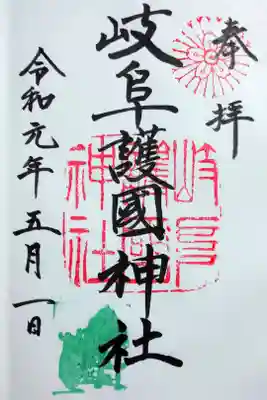 奉拝
岐阜護國神社
岐阜護國神社
令和元年五月一日